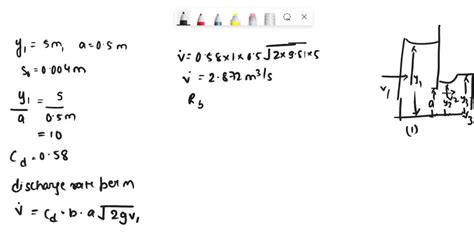 y₁ = 5m, a = 0.5m
S₀ = 0.004m
y₁/a = 5/0.5m
= 10
Cd = 0.58
discharge rate per m
v̇ = Cd · b · a √2gv₁
v̇ = 0.58×1×0.5√2×9.51×5
v̇ = 2.872 m³/s
Rs
v₁
y₁
a
y₂
y₃
(1)